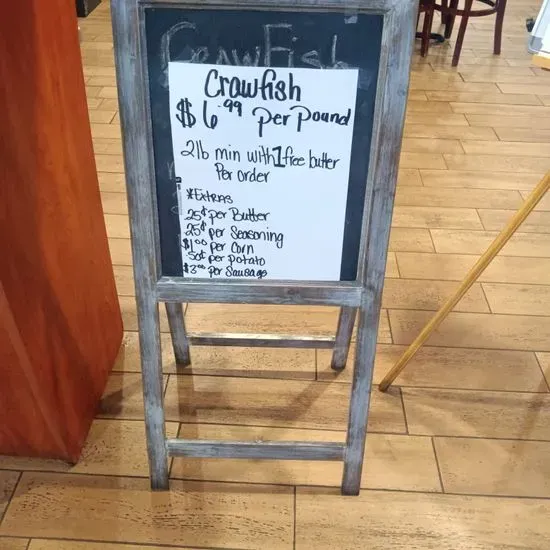 CrawFish
Crawfish
$6.99 per pound
2lb min with 1 free butter
Per order
*Extras
25¢ per Butter
25¢ per Seasoning
$1.00 per Corn
50¢ per potato
$3.00 per Sausage